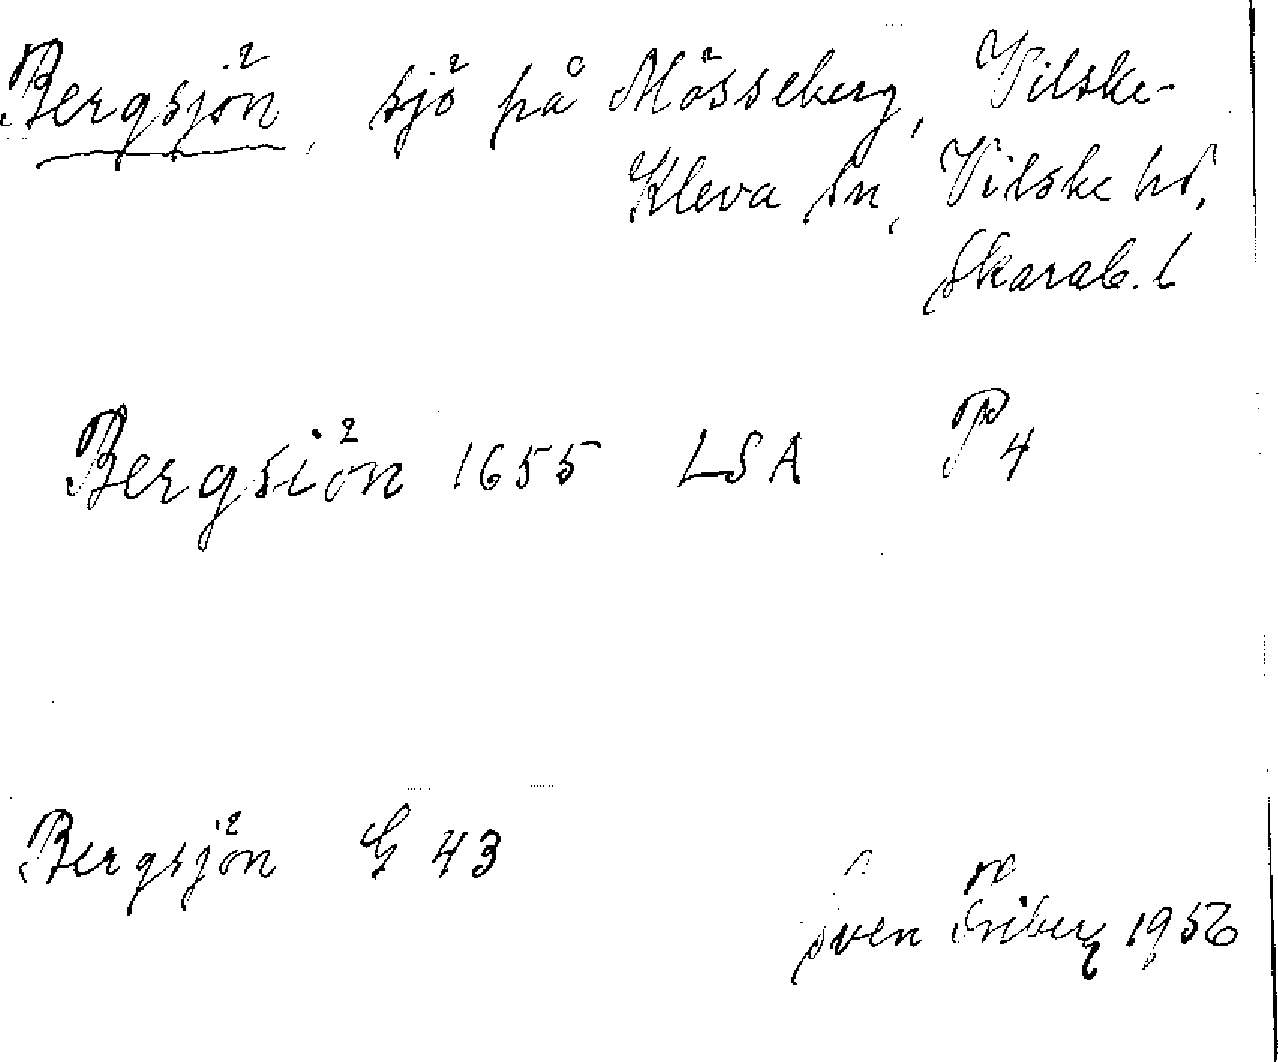 Bergsjön, sjö på Mösseberg, Vilske-
Kleva sn, Vilske hd,
Skarab. l
Bergsiön 1655 LSA P4
Bergsjön G 43
Sven Friberg 1956